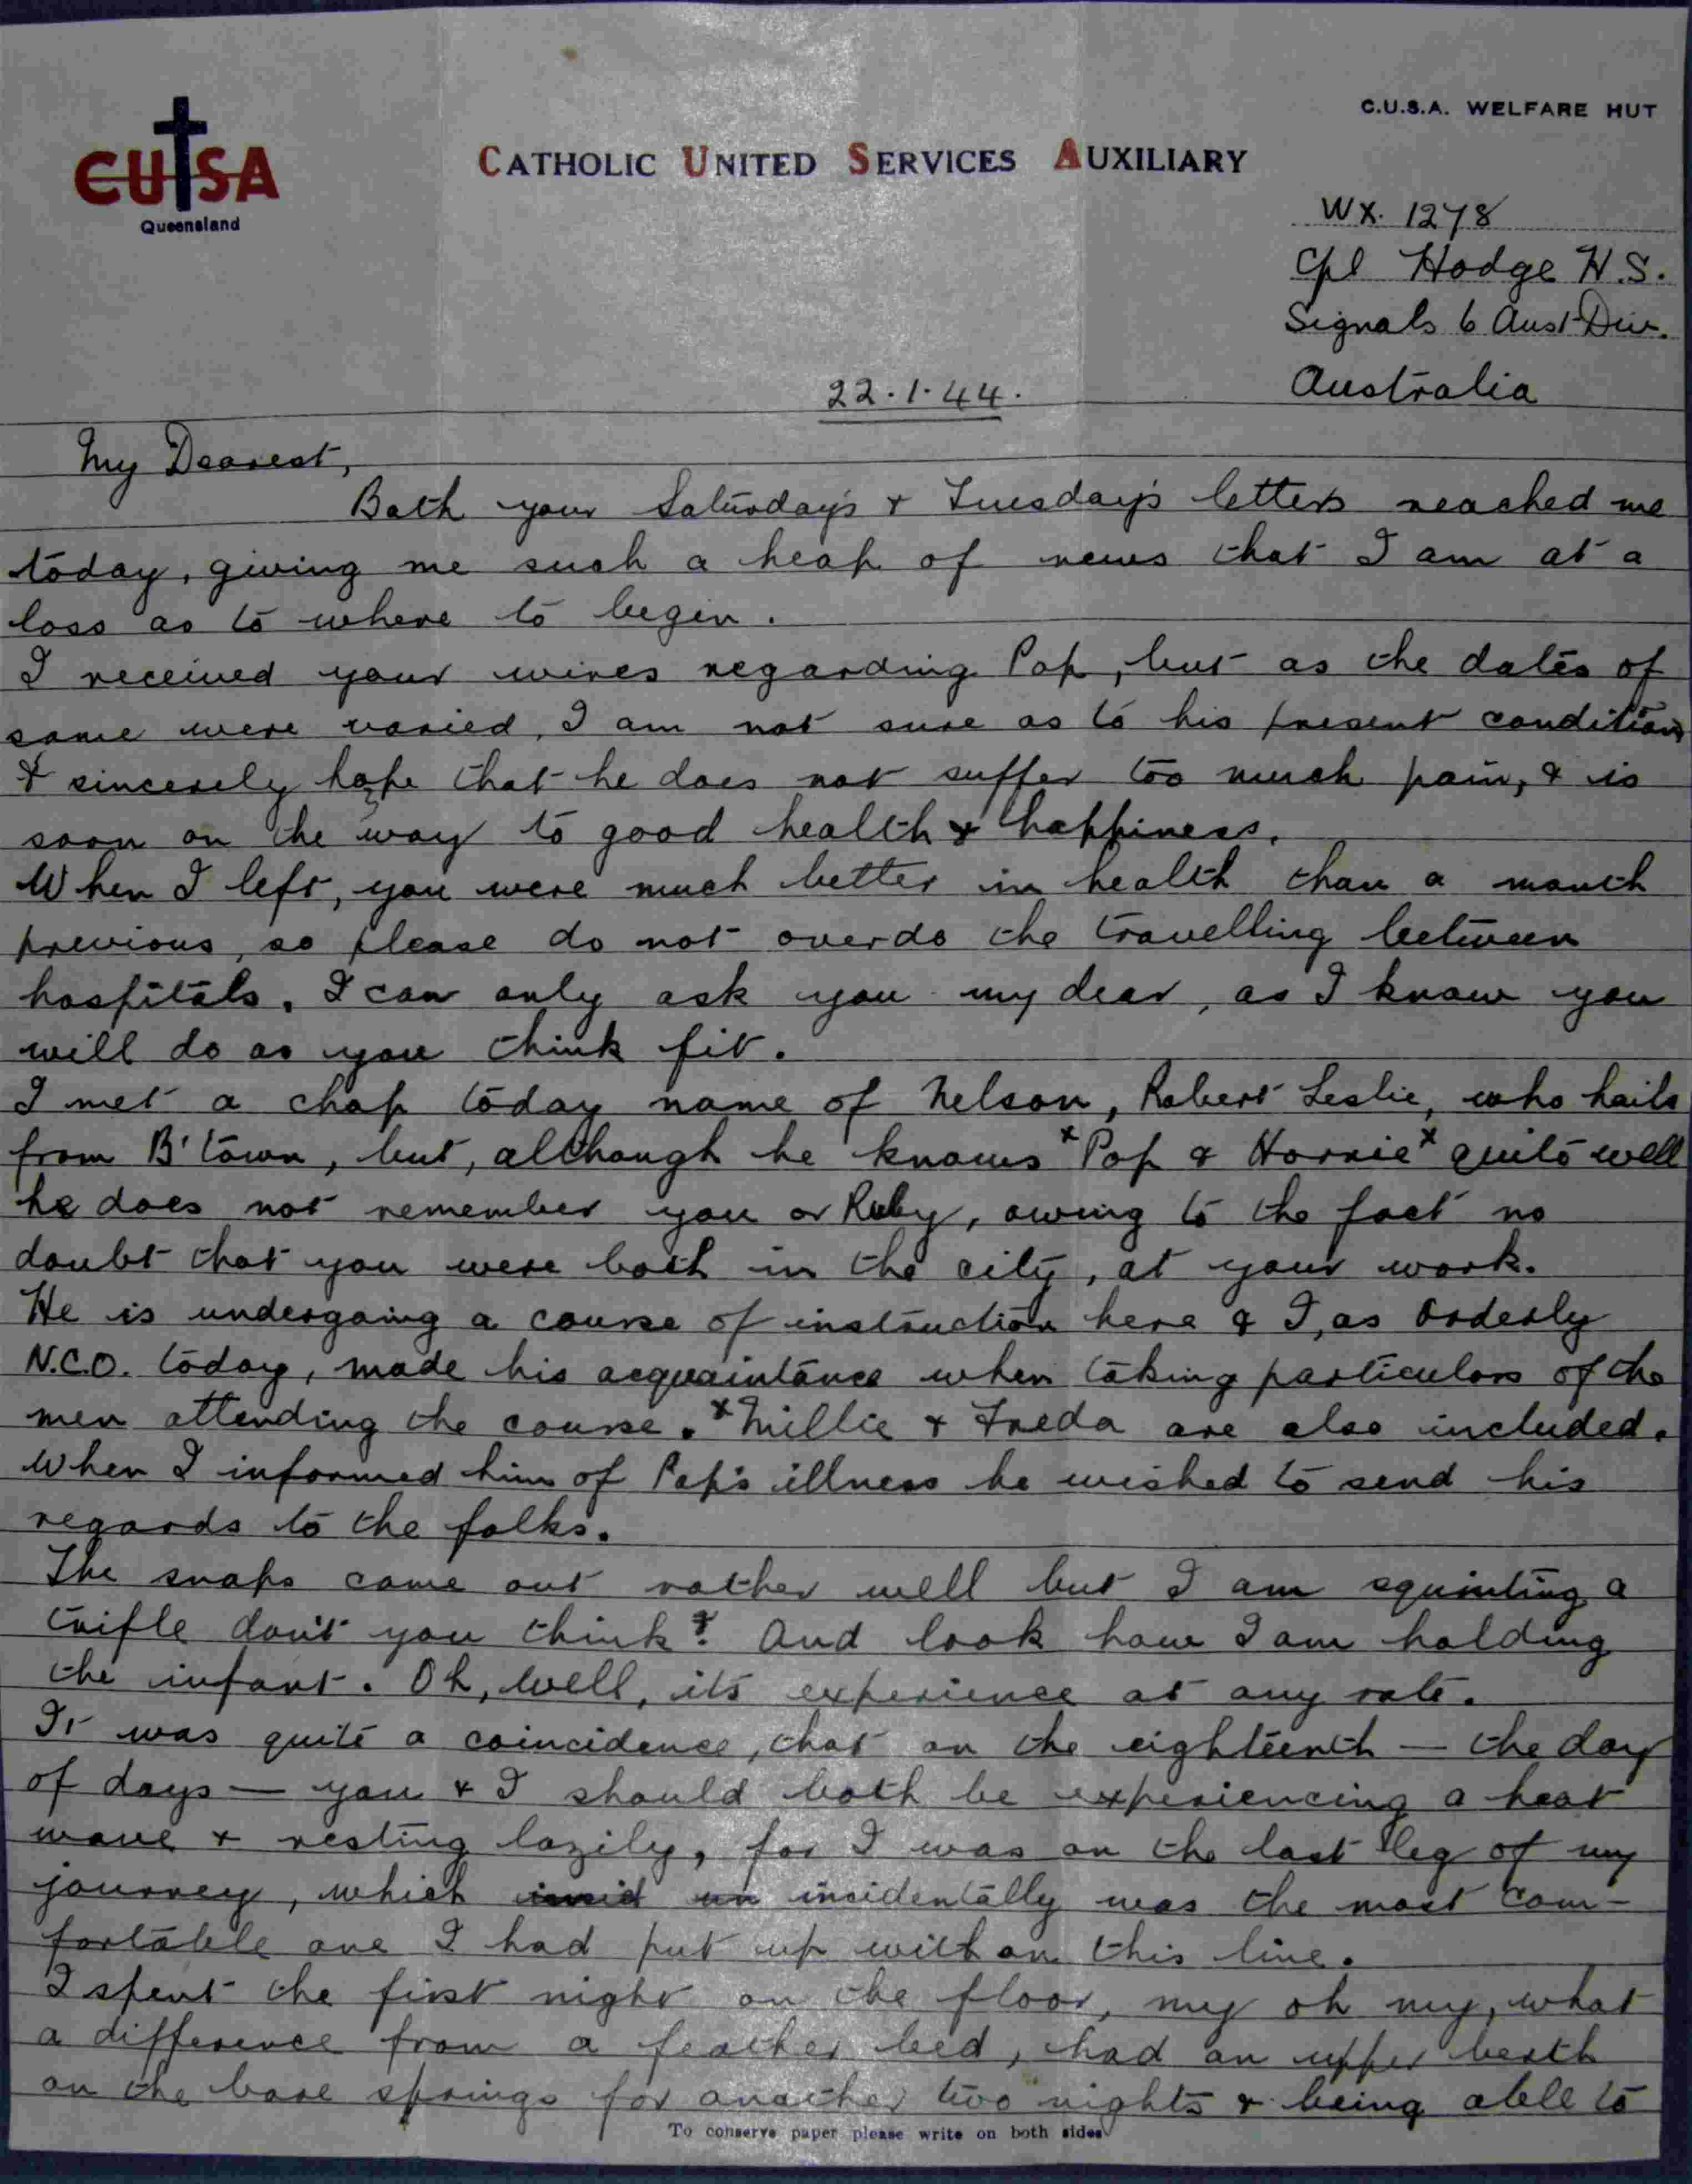 C.U.S.A. WELFARE HUT
CUSA
Queensland
CATHOLIC UNITED SERVICES AUXILIARY
WX. 1278
Cpl Hodge H.S.
Signals 6 Aust Div.
Australia
22.1.44.
My Dearest,
Both your Saturday's & Tuesday's letters reached me
today, giving me such a heap of news that I am at a
loss as to where to begin.
I received your wires regarding Pop, but as the dates of
same were varied, I am not sure as to his present condition
& sincerely hope that he does not suffer too much pain, & is
soon on the way to good health & happiness.
When I left, you were much better in health than a month
previous, so please do not overdo the travelling between
hospitals. I can only ask you my dear, as I know you
will do as you think fit.
I met a chap today name of Nelson, Robert Leslie, who hails
from B'town, but, although he knows x Pop & Horrie x quite well
he does not remember you or Ruby, owing to the fact no
doubt that you were both in the city, at your work.
He is undergoing a course of instruction here & I, as Orderly
N.C.O. today, made his acquaintance when taking particulars of the
men attending the course. x Millie & Freda are also included.
When I informed him of Pop's illness he wished to send his
regards to the folks.
The snaps came out rather well but I am squinting a
trifle don't you think? And look how I am holding
the infant. Oh, well, its experience at any rate.
It was quite a coincidence, that on the eighteenth — the day
of days — you & I should both be experiencing a heat
wave & resting lazily, for I was on the last leg of my
journey, which incidentally was the most com-
fortable one I had put up with on this line.
I spent the first night on the floor, my oh my, what
a difference from a feather bed, had an upper berth
on the bare springs for another two nights & being able to
To conserve paper please write on both sides